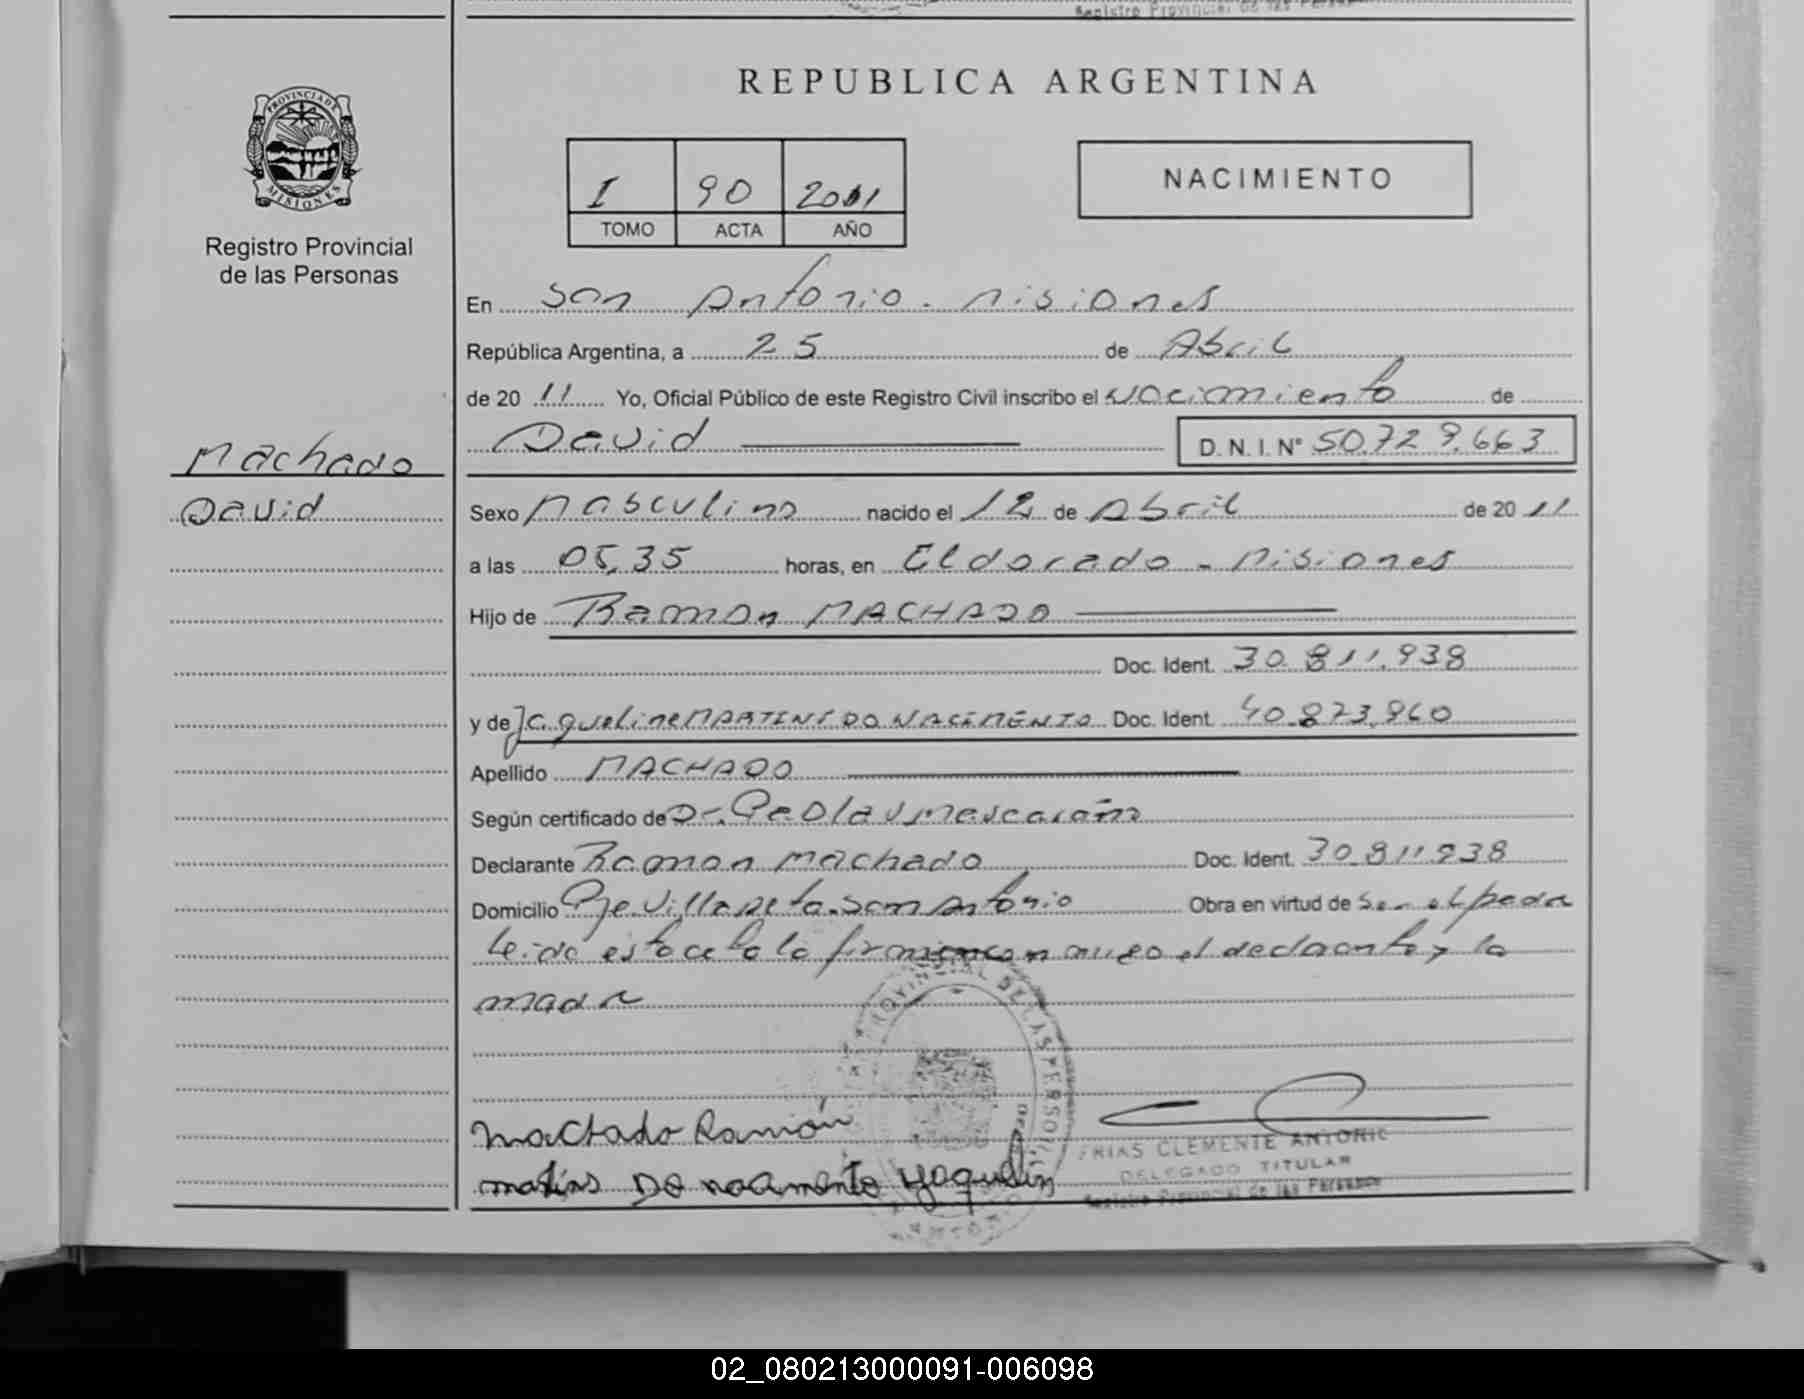 Registro Provincial de las Personas
REPUBLICA ARGENTINA
PROVINCIA DE
MISIONES
Registro Provincial
de las Personas
I 90 2011
TOMO ACTA AÑO
NACIMIENTO
En San Antonio - Misiones
República Argentina, a 25 de Abril
de 2011 Yo, Oficial Público de este Registro Civil inscribo el Nacimiento de
David D. N. I. Nº 50.729.663
Machado
David
Sexo Masculino nacido el 12 de Abril de 2011
a las 05,35 horas, en Eldorado - Misiones
Hijo de Ramon MACHADO
Doc. Ident. 30.811.938
y de Jaqueline MARTINS DO NACIMENTO Doc. Ident. 40.873.960
Apellido MACHADO
Según certificado de Dr.
Declarante Ramon Machado Doc. Ident. 30.811.938
Domicilio San Antonio Obra en virtud de Ser el padre
Leida esta acta la firman conmigo el declarante y la
madre
Machado Ramón
martins Do nacimento yaquelin
FRIAS CLEMENTE ANTONIO
DELEGADO TITULAR
Registro Provincial de las Personas
02_080213000091-006098